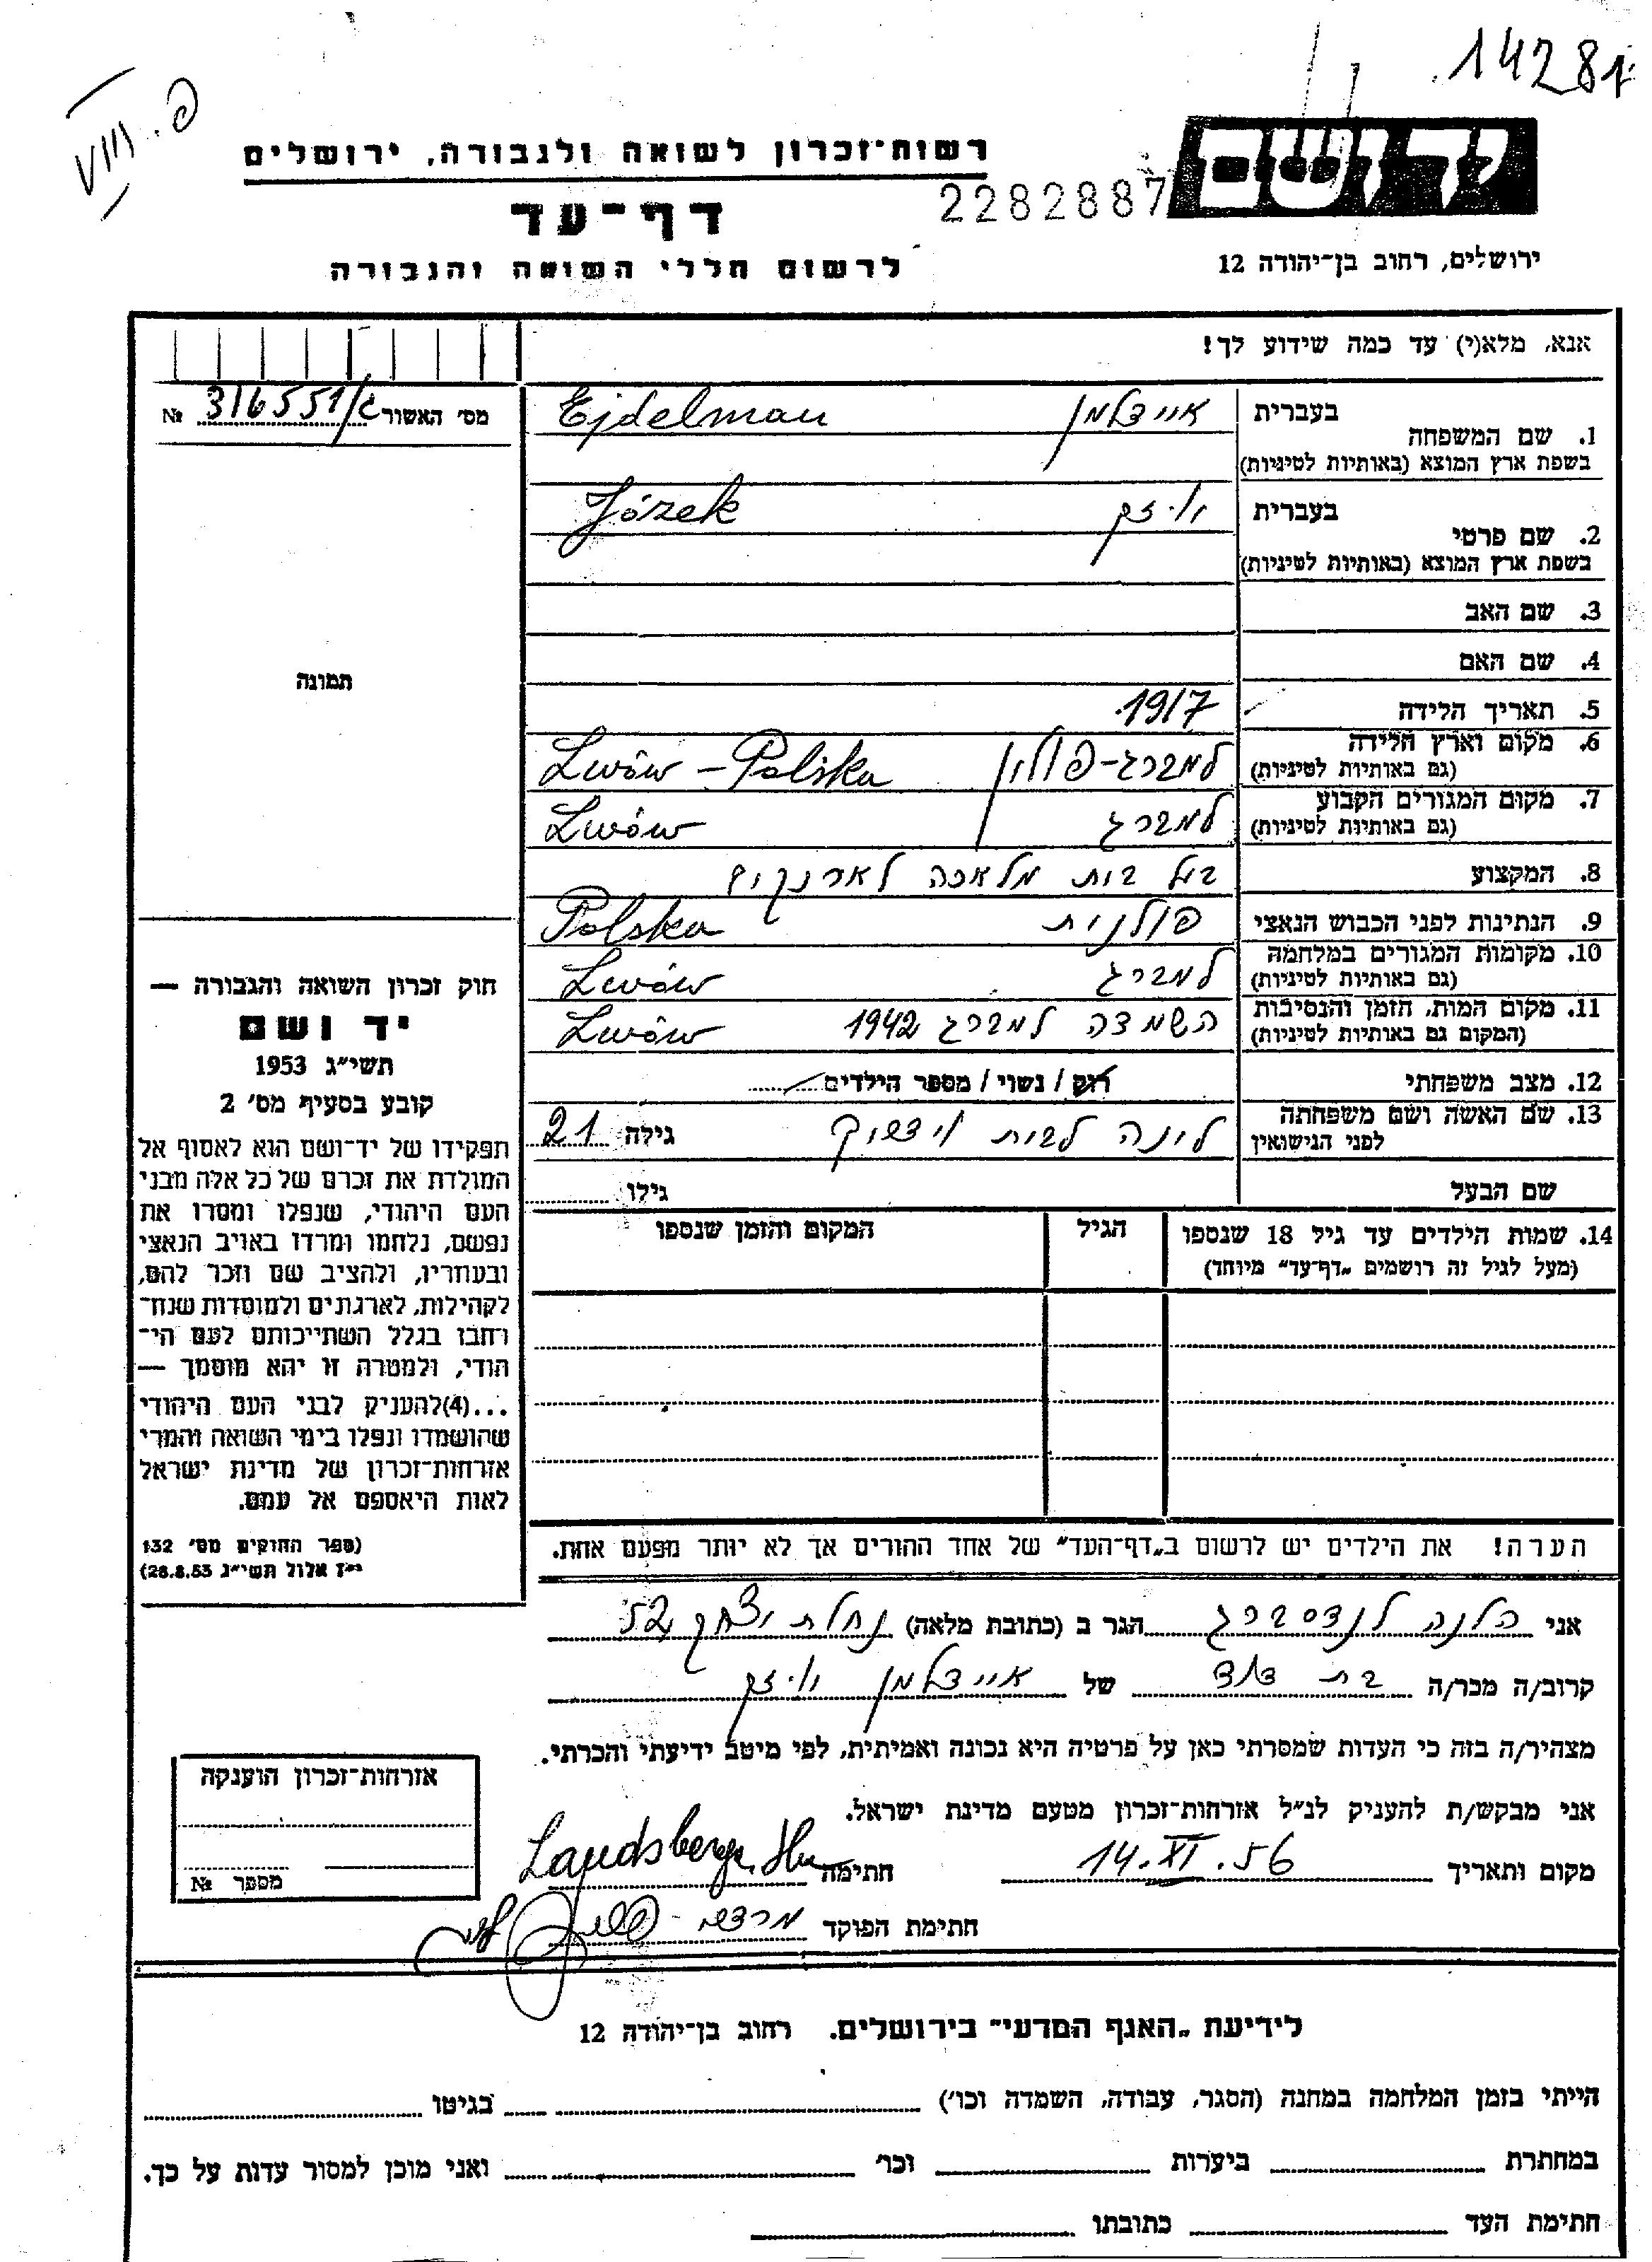 14281
פ. VIII
יד ושם
רשות־זכרון לשואה ולגבורה, ירושלים
2282887
דף־עד
לרשום חללי השואה והגבורה
ירושלים, רחוב בן־יהודה 12
אנא, מלא(י) עד כמה שידוע לך!
מס' האשור 316551/ג №
1. שם המשפחה בעברית איידלמן Ejdelman
בשפת ארץ המוצא (באותיות לטיניות)
2. שם פרטי בעברית יוזק Józek
בשפת ארץ המוצא (באותיות לטיניות)
3. שם האב
4. שם האם
תמונה
5. תאריך הלידה 1917
6. מקום וארץ הלידה למברג-פולין Lwów - Polska
(גם באותיות לטיניות)
7. מקום המגורים הקבוע למברג Lwów
(גם באותיות לטיניות)
8. המקצוע בעל בית מלאכה לארנקים
9. הנתינות לפני הכבוש הנאצי פולנית Polska
10. מקומות המגורים במלחמה למברג Lwów
(גם באותיות לטיניות)
11. מקום המות, הזמן והנסיבות השמדה למברג 1942 Lwów
(המקום גם באותיות לטיניות)
12. מצב משפחתי רוק / נשוי / מספר הילדים
13. שם האשה ושם משפחתה לינה לבית גילה 21
לפני הנישואין
שם הבעל גילו
14. שמות הילדים עד גיל 18 שנספו הגיל המקום והזמן שנספו
(מעל לגיל זה רושמים „דף־עד" מיוחד)
חוק זכרון השואה והגבורה —
יד ושם
תשי״ג 1953
קובע בסעיף מס' 2
תפקידו של יד־ושם הוא לאסוף אל
המולדת את זכרם של כל אלה מבני
העם היהודי, שנפלו ומסרו את
נפשם, נלחמו ומרדו באויב הנאצי
ובעוזריו, ולהציב שם וזכר להם,
לקהילות, לארגונים ולמוסדות שנח־
רבו בגלל השתייכותם לעם הי־
הודי, ולמטרה זו יהא מוסמך —
...(4)להעניק לבני העם היהודי
שהושמדו ונפלו בימי השואה והמרי
אזרחות־זכרון של מדינת ישראל
לאות היאספם אל עמם.
(ספר החוקים מס' 132
י״ז אלול תשי״ג 28.8.53)
הערה! את הילדים יש לרשום ב„דף־העד" של אחד ההורים אך לא יותר מפעם אחת.
אני הלנה לנדסברג הגר ב (כתובת מלאה) נחלת יצחק 52
קרוב/ה מכר/ה בת דוד של איידלמן יוזק
מצהיר/ה בזה כי העדות שמסרתי כאן על פרטיה היא נכונה ואמיתית, לפי מיטב ידיעתי והכרתי.
אני מבקש/ת להעניק לנ״ל אזרחות־זכרון מטעם מדינת ישראל.
מקום ותאריך 14.XI.56 חתימה Landsberg
חתימת הפוקד
אזרחות־זכרון הוענקה
מספר №
לידיעת „האגף המדעי" בירושלים. רחוב בן־יהודה 12
הייתי בזמן המלחמה במחנה (הסגר, עבודה, השמדה וכו') בגיטו
במחתרת ביערות וכו' ואני מוכן למסור עדות על כך.
חתימת העד כתובתו